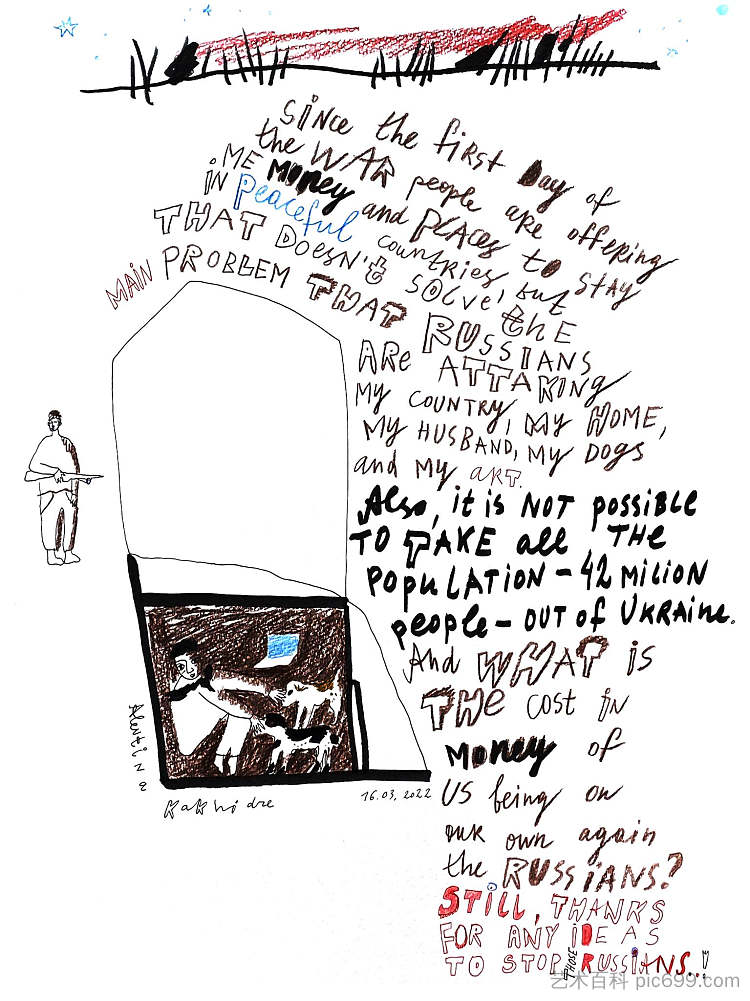 SiNce the first Day of
the WAR people are offering
ME MoNey and PLACes to stay
iN Peaceful countries but
THAT DOesN't SOLVe, the
MAiN PROBLEM THAT RUSSIANS
ARe ATTAKiNg
My COUNTRY, My HOME,
My HUSBAND, My DOgS
and My ART.
Also, it is NOT possiBLE
TO TAKE all THe
popuLATiON - 42 MiLiON
people - OUT of UKRAiNe.
And WHAT is
THe cost iN
MoNey of
US being on
our own again
the RUSSiANS?
STiLL, THANKS
FOR ANY iDEAS
TO STOP THOSE RUSSiANS..!
Alevtina
Kakhidze
16.03.2022
艺术百科 pic699.com